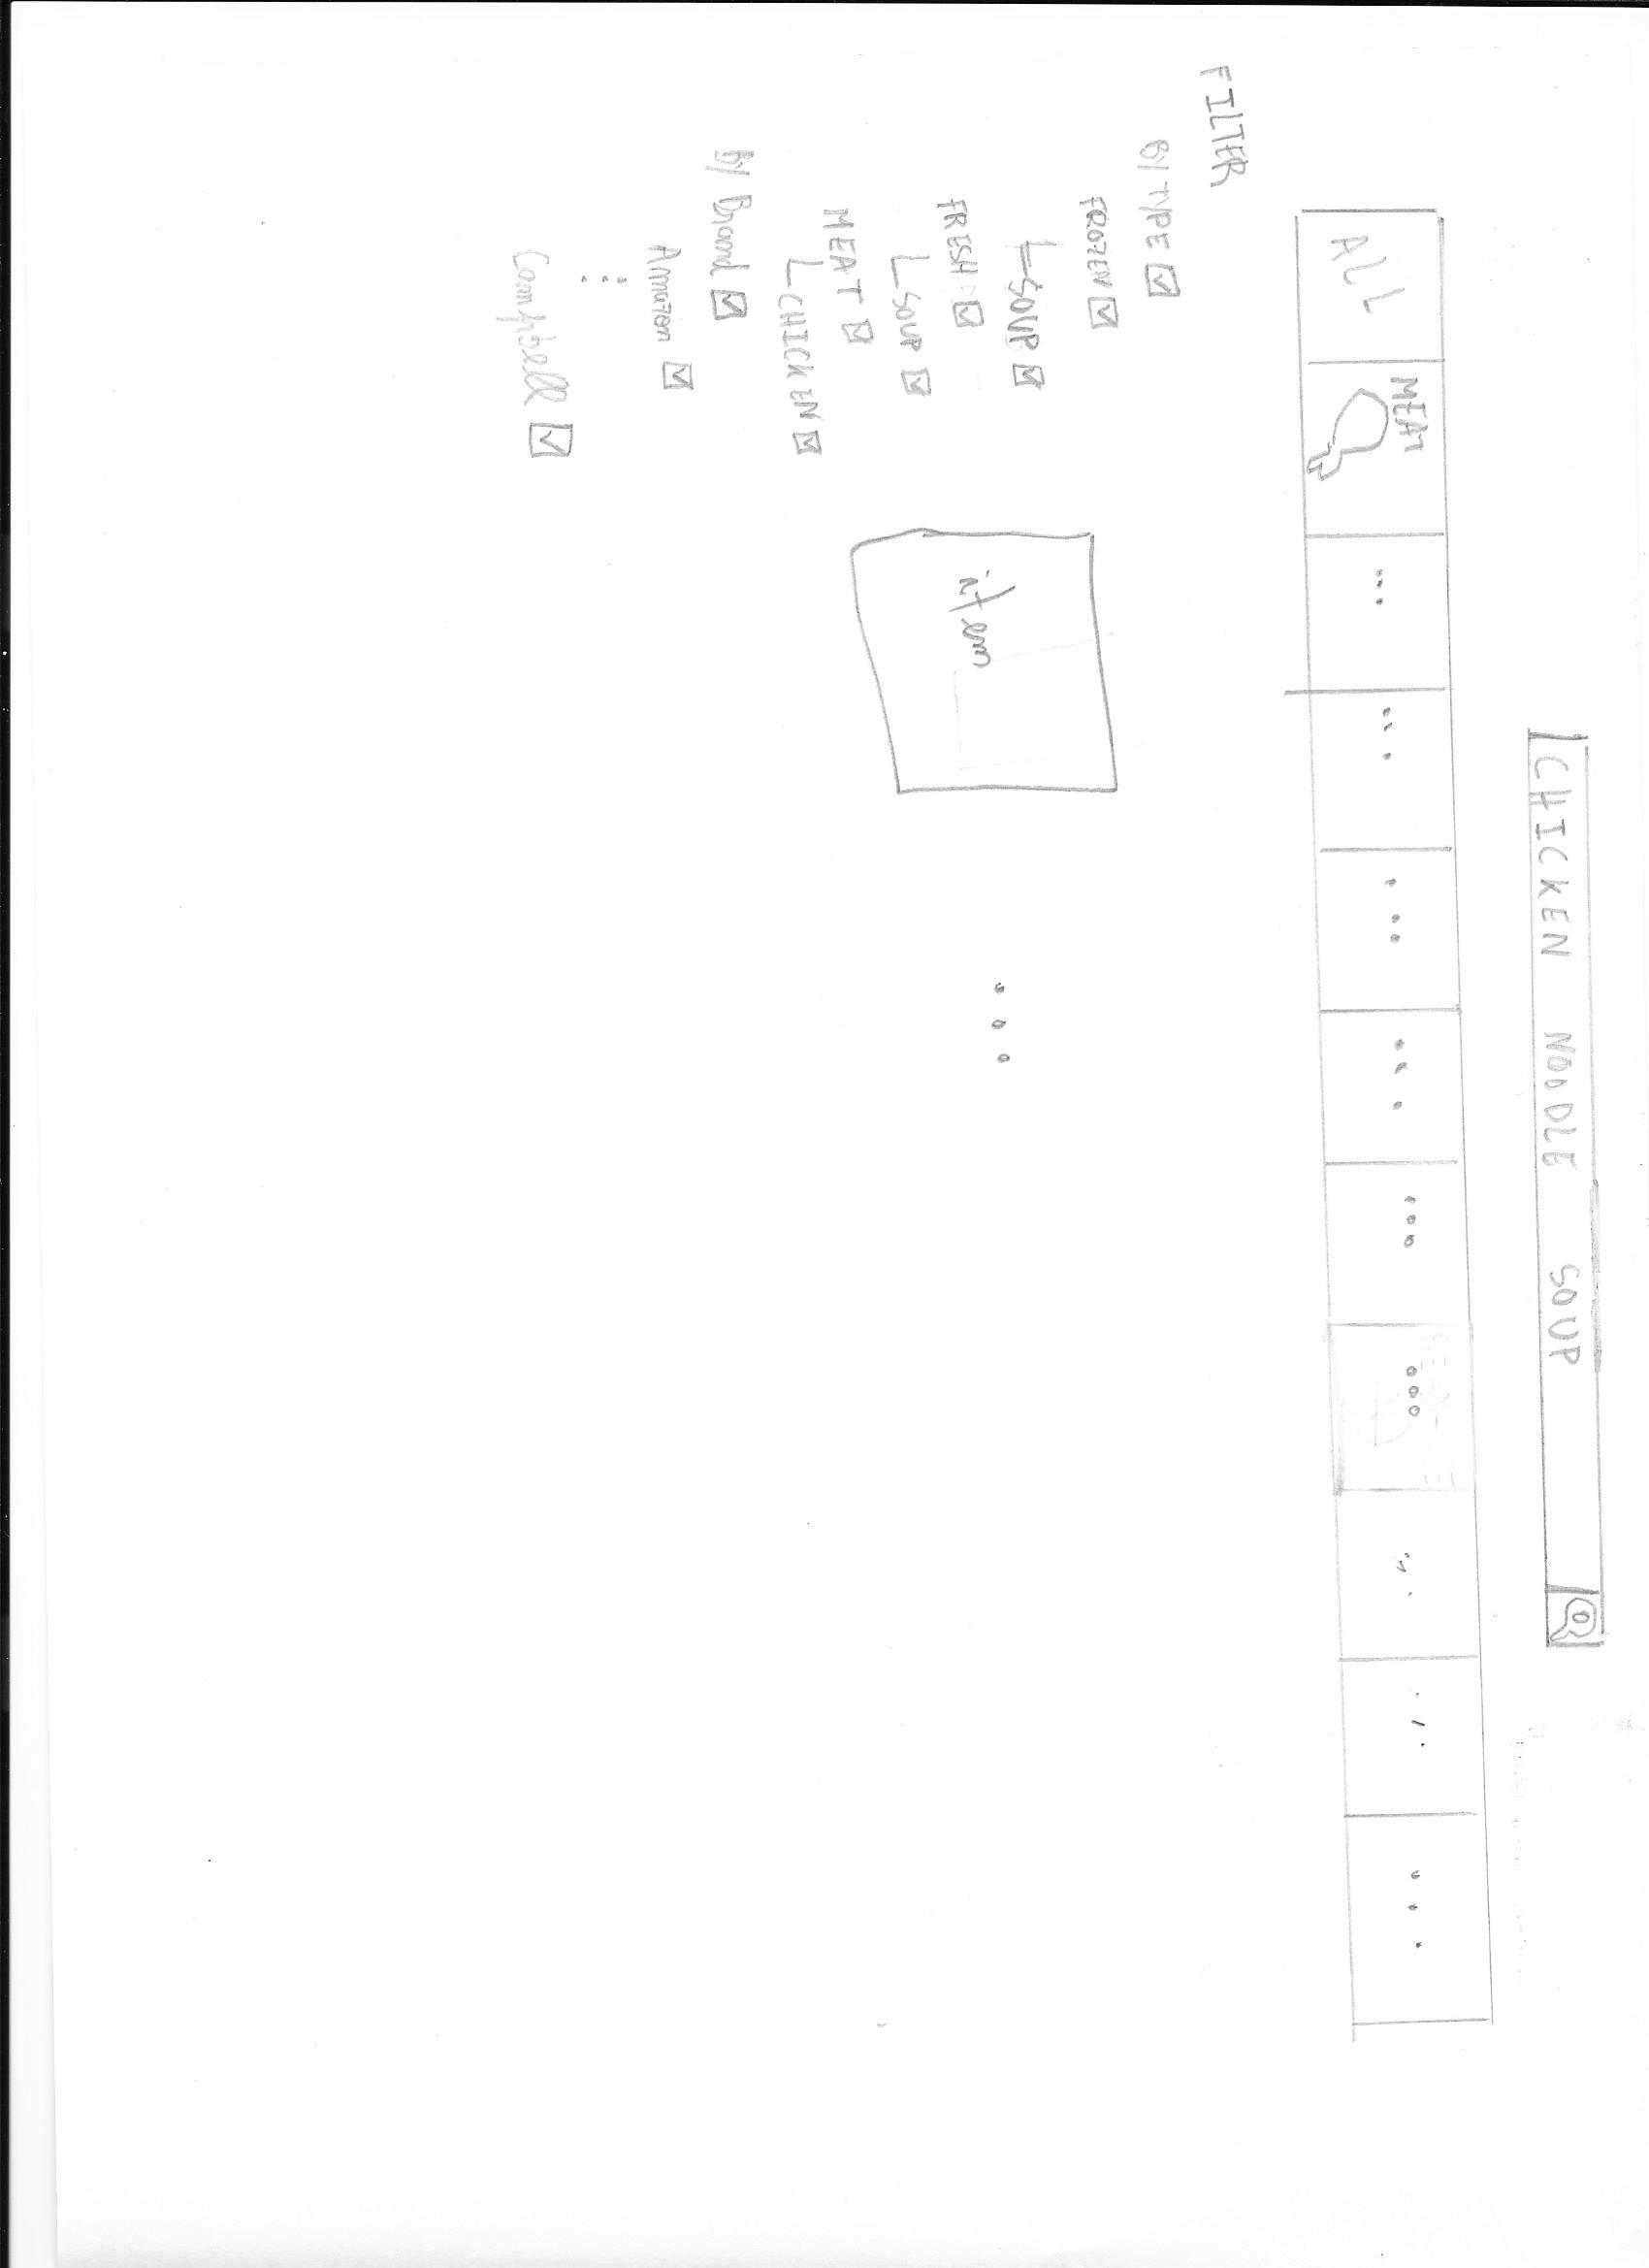 CHICKEN NOODLE SOUP
ALL
MEAT
...
...
...
...
...
...
...
...
...
FILTER
BY TYPE
FROZEN
SOUP
FRESH
SOUP
MEAT
CHICKEN
item
...
By Brand
Amazon
Campbell